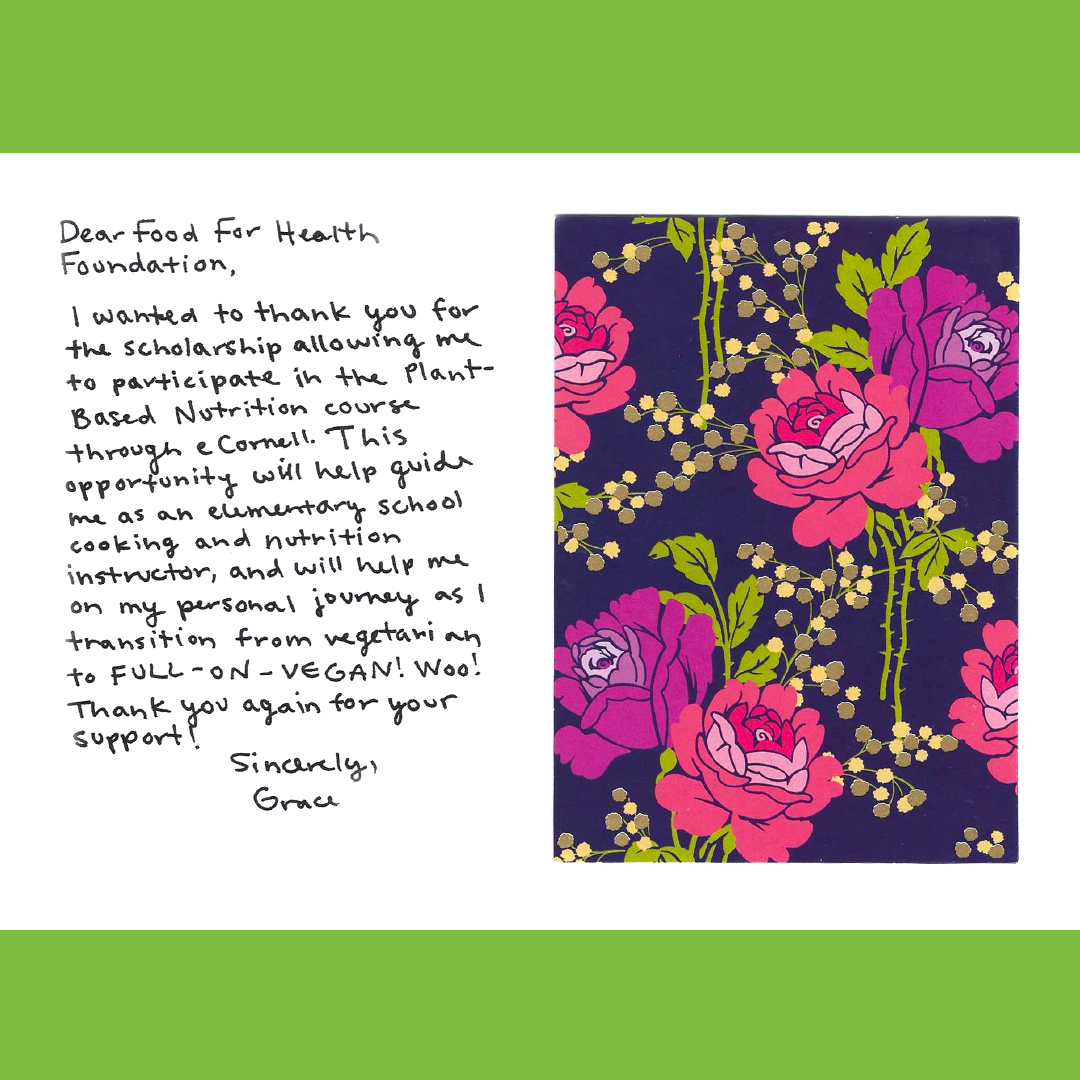 Dear Food For Health
Foundation,
I wanted to thank you for
the scholarship allowing me
to participate in the Plant-
Based Nutrition course
through eCornell. This
opportunity will help guide
me as an elementary school
cooking and nutrition
instructor, and will help me
on my personal journey as I
transition from vegetarian
to FULL-ON-VEGAN! Woo!
Thank you again for your
support!
Sincerely,
Grace